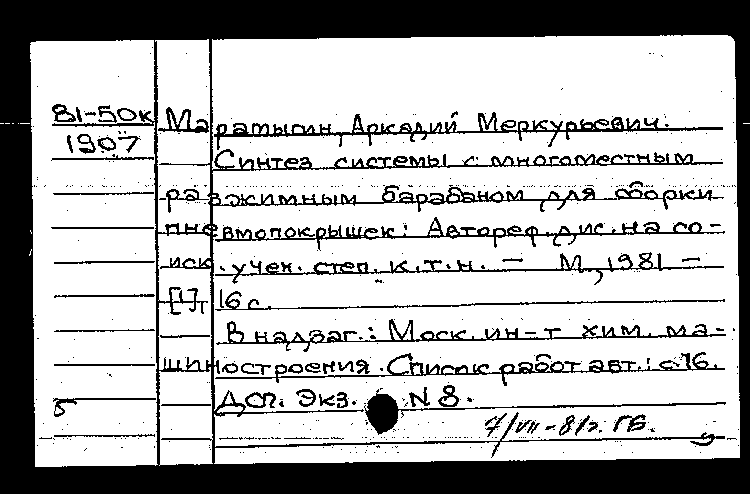 81-50к Маратыгин, Аркадий Меркурьевич.
1907
Синтез системы с многоместным
разжимным барабаном для сборки
пневмопокрышек: Автореф. дис. на со-
иск. учен. степ. к.т.н. — М., 1981 —
16 с.
В надзаг.: Моск. ин-т хим. ма-
шиностроения. Список работ авт.: с.16.
5 Доп. Экз. N 8.
7/VII-81г. ГБ.